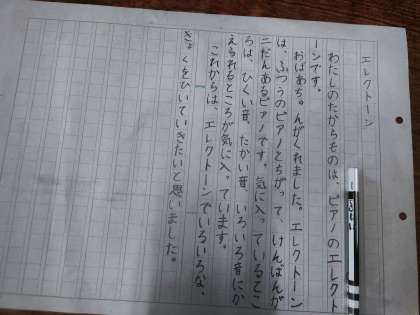 エレクトーン
わたしのたからものは、ピアノのエレクト
ーンです。
おばあちゃんがくれました。エレクトーン
は、ふつうのピアノとちがって、けんばんが
二だんあるピアノです。気に入っているとこ
ろは、ひくい音、たかい音、いろいろ音にか
えられるところが気に入っています。
これからは、エレクトーンでいろいろな、
きょくをひいていきたいと思いました。